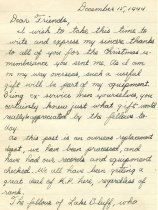 December 15, 1944
Dear Friends,
I wish to take this time to
write and express my sincere thanks
to all of you for the Christmas re-
membrance you sent me. As I am
on my way overseas, such a useful
gift will be part of my equipment.
Being ex-service men yourselves, you
certainly knew just what gift would
really appreciated by the fellows to-
day.
As this post is an overseas replacement
depot, we have been processed, and
have had our records and equipment
checked. We all have been getting a
great deal of K.P. here, regardless of
rank.
The fellows of Lake Bluff, who